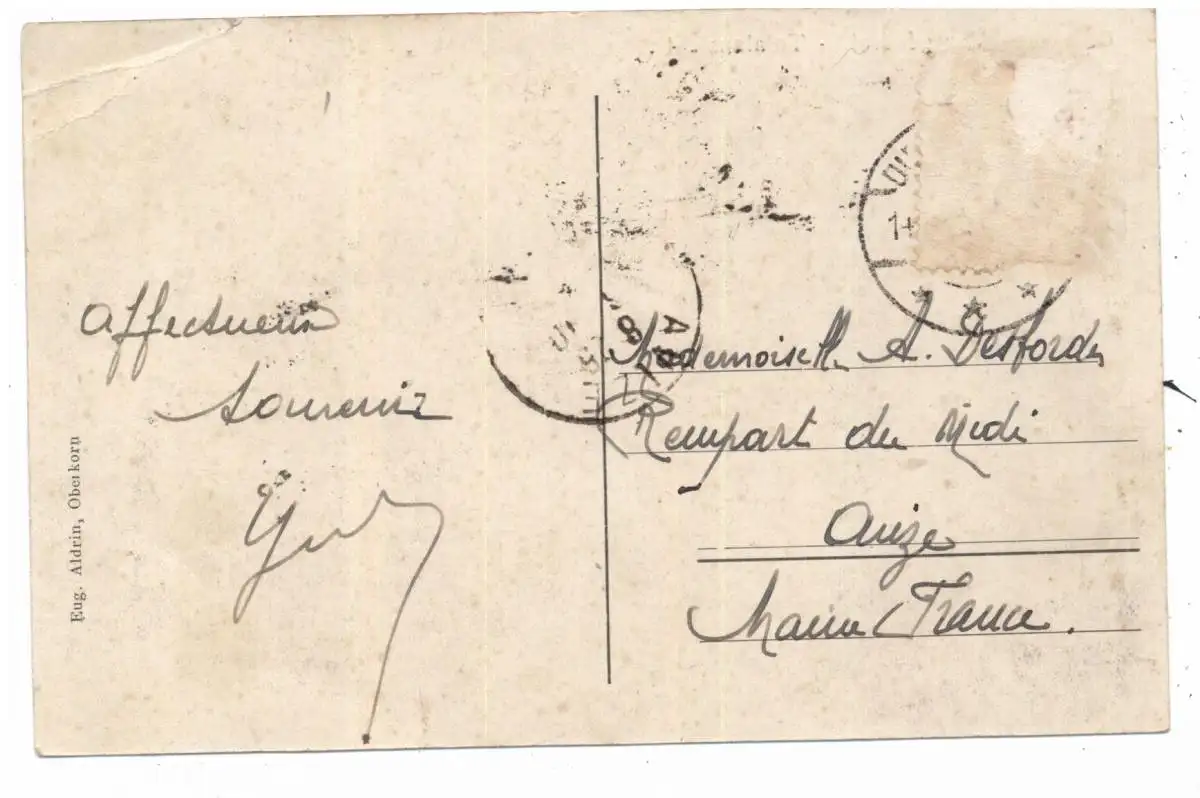 affectueux
souvenir
Eug. Aldrin, Oberkorn
Mademoiselle A. Desforges
Rempart du Midi
Avize
Marne France.